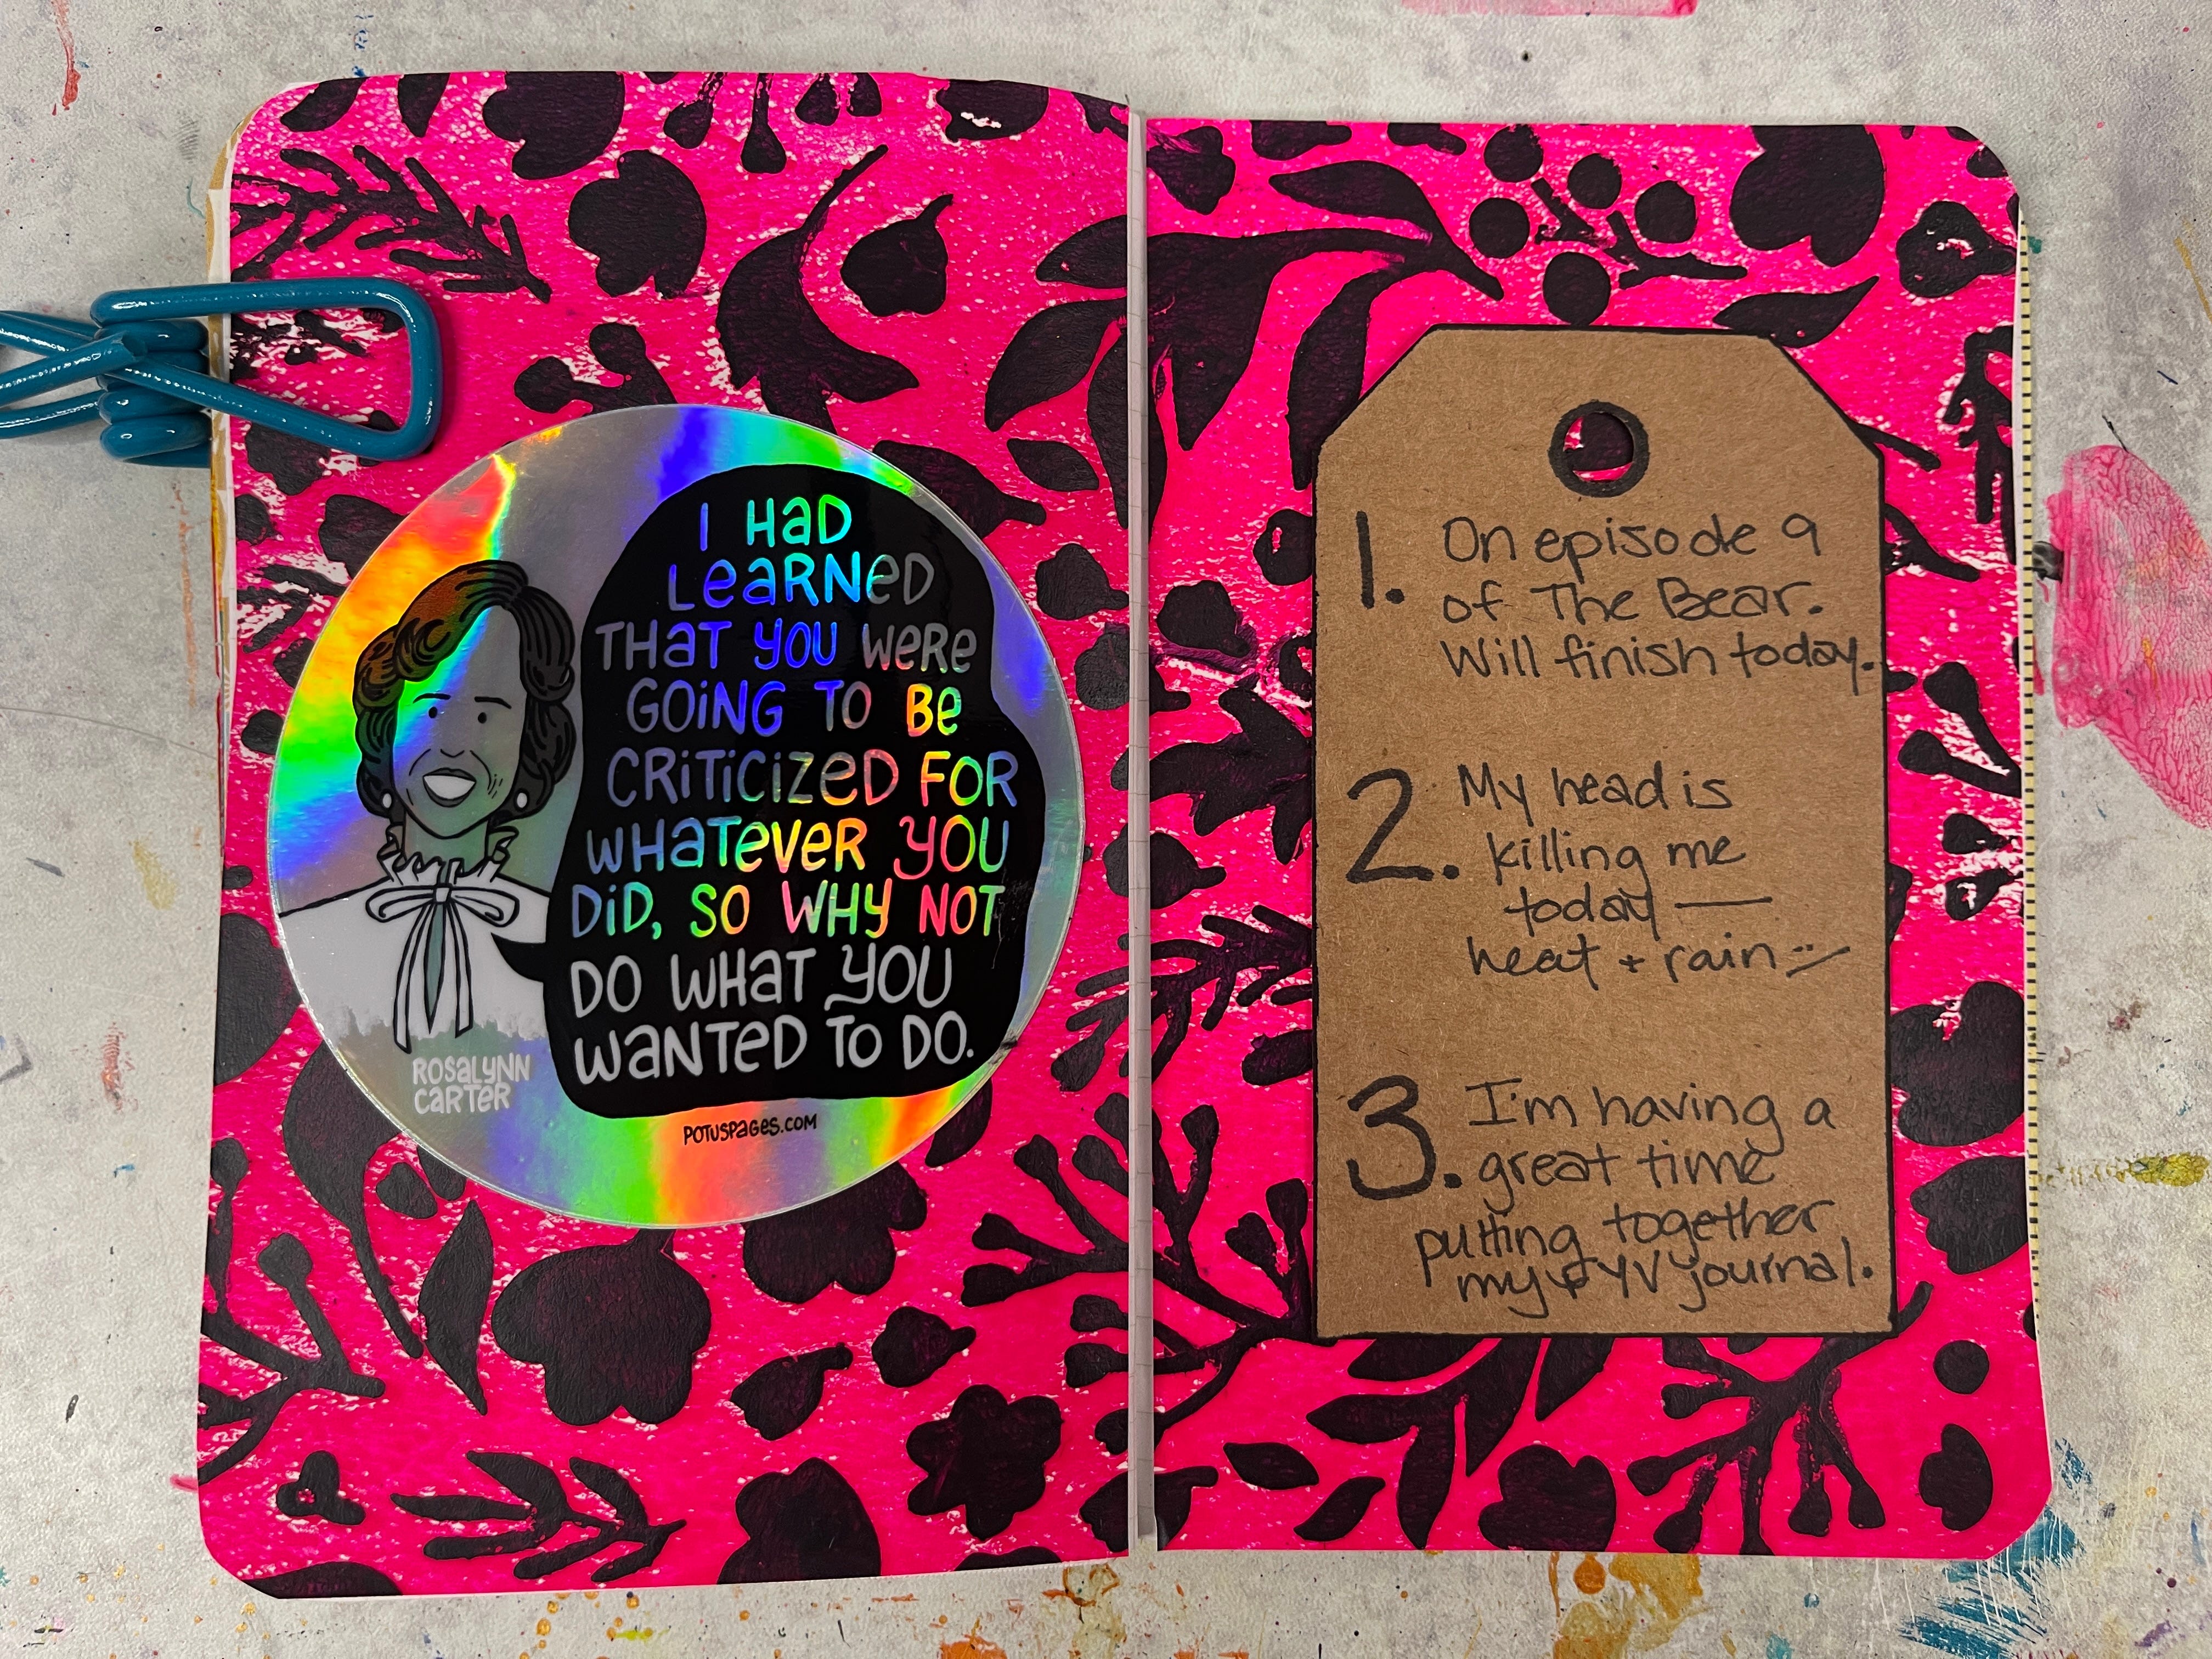 I HaD
LeaRNeD
THaT YOU WeRe
GOiNG TO Be
CRiTiCiZeD FOR
WHaTeVeR YOU
DiD, SO WHY NOT
DO WHaT YOU
WaNTeD TO DO.
ROSaLYNN
CaRTeR
POTUSPaGeS.COM
1. On episode 9
of The Bear.
Will finish today.
2. My head is
killing me
today —
heat + rain
3. I'm having a
great time
putting together
my YV journal.